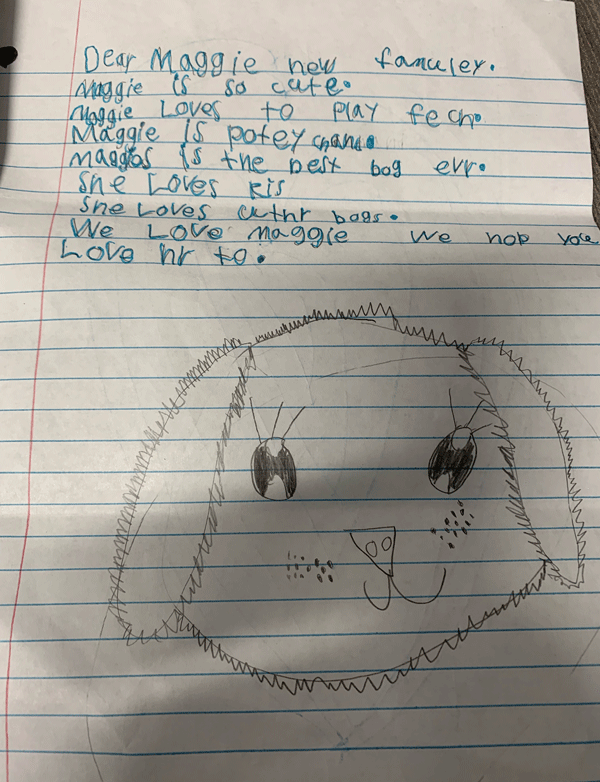 Dear Maggie new famuley.
Maggie is so cute.
Maggie Loves to play fech.
Maggie is potey chand.
Maggies is the best bog evr.
She Loves kis
She Loves uthr bogs.
We Love Maggie We hop you
Love hr to.